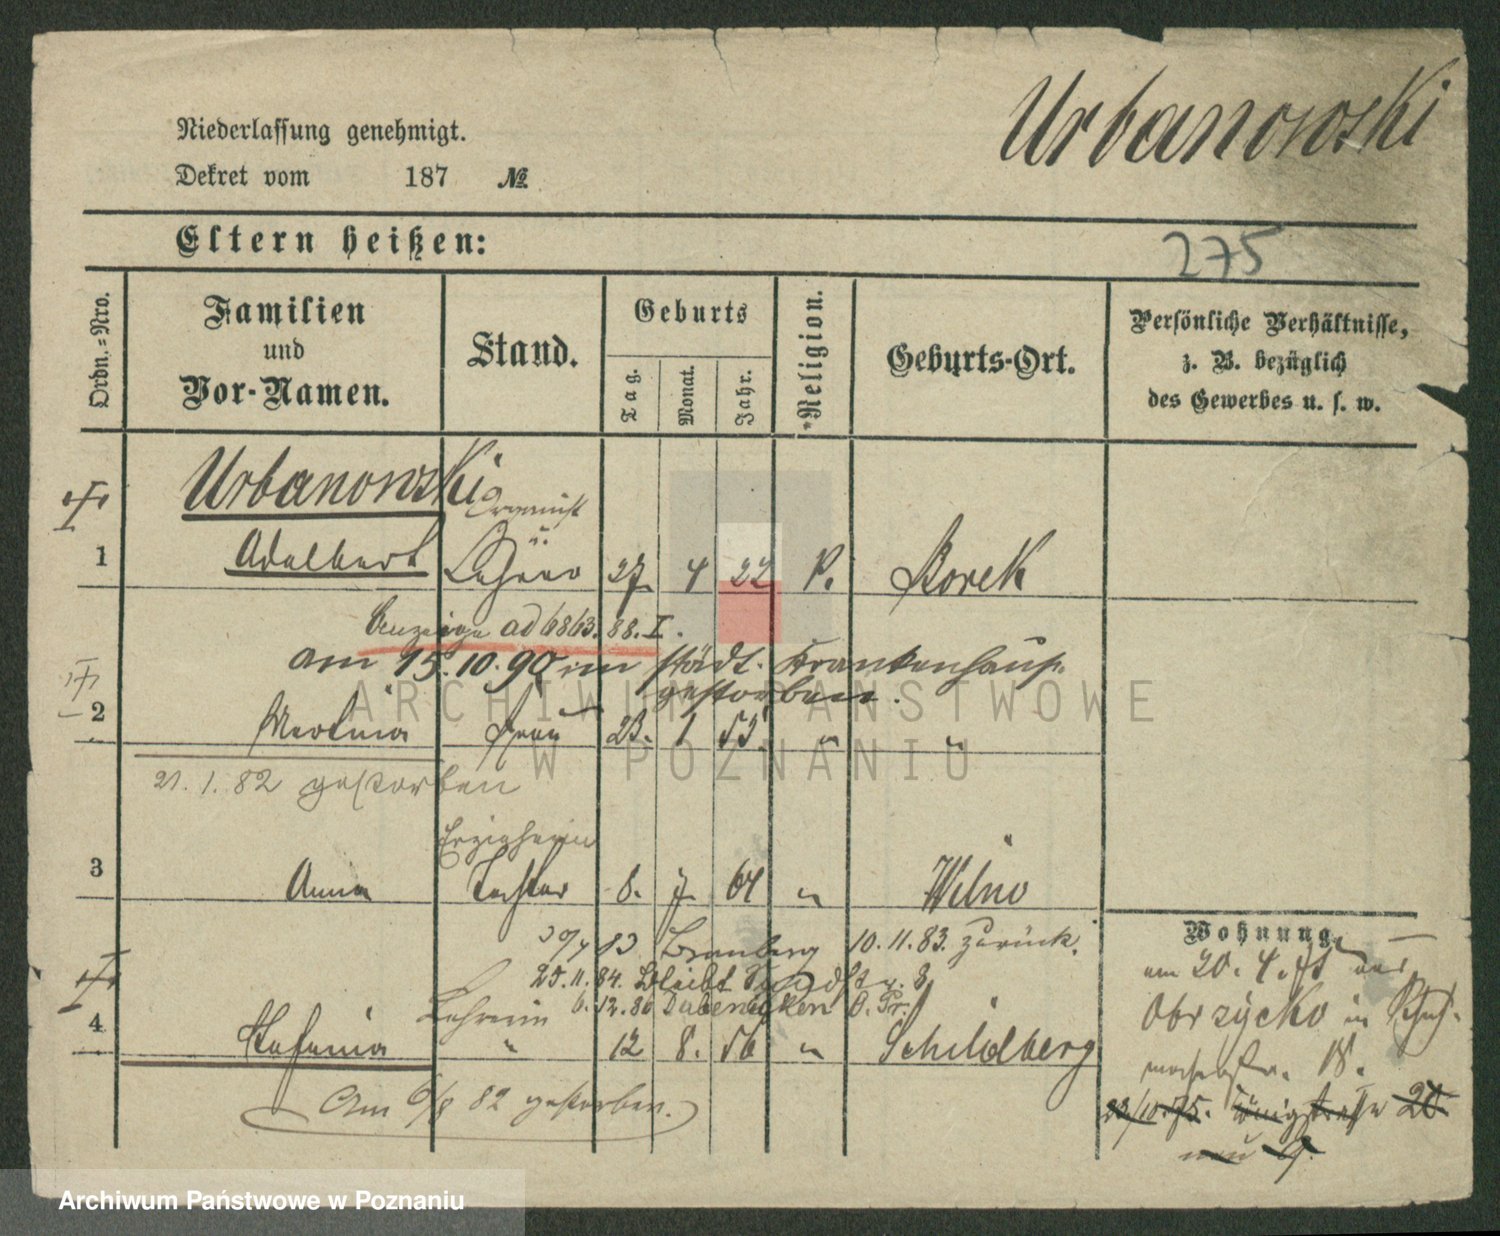 Urbanowski
Niederlassung genehmigt.
Dekret vom 187 №
275
Eltern heißen:
Ordn.-Nro.
Familien und Vor-Namen.
Stand.
Geburts
Tag. Monat. Jahr.
*Religion.
Geburts-Ort.
Persönliche Verhältnisse,
z. B. bezüglich
des Gewerbes u. s. w.
Urbanowski
Organist
u.
1 Adalbert Lehrer 27 4 22 k. Borek
Anzeige ad 6863. 88. I.
am 15.10.90 im städt. Krankenhaus
gestorben.
2 Frau 23. 1 "  "
21.1.82 gestorben
Erzieherin
3 Anna Tochter 8. 7. 64 " Wilno
Bromberg 10.11.83. zurück.
25.11.84. bleibt
Lehrerin 6.12.86 O. Pr.
4 Stefania " 12 8. 56 " Schildberg
Am 6/8 82 gestorben.
Wohnung.
am 20. 4. 75 aus
Obrzycko in
18.
23/10.75. Königstraße 20
neu 9.
ARCHIWUM PAŃSTWOWE
W POZNANIU
Archiwum Państwowe w Poznaniu